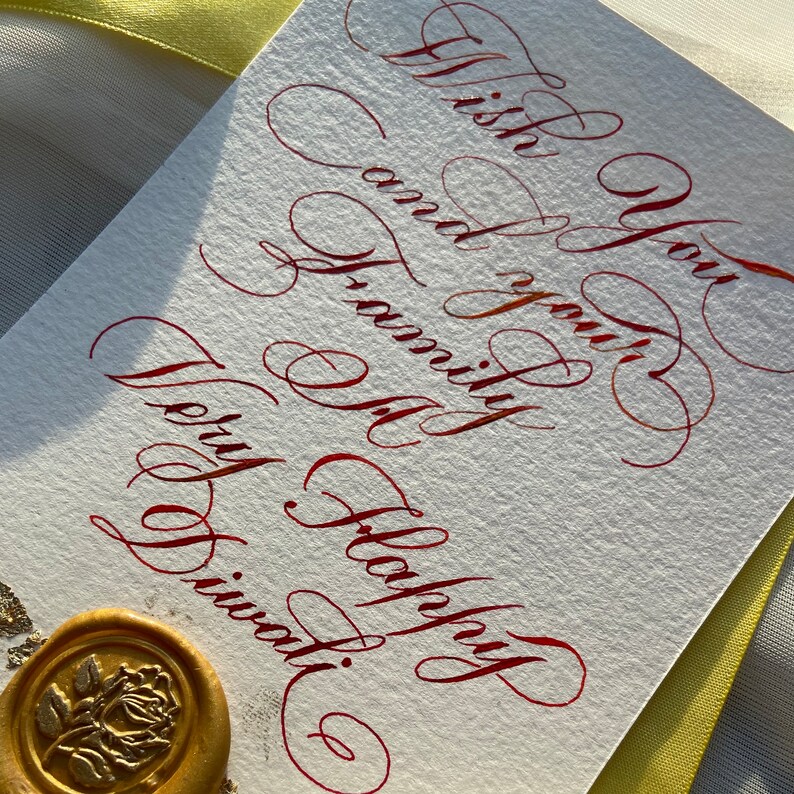 Wish You
and your
Family
A
Very Happy
Diwali